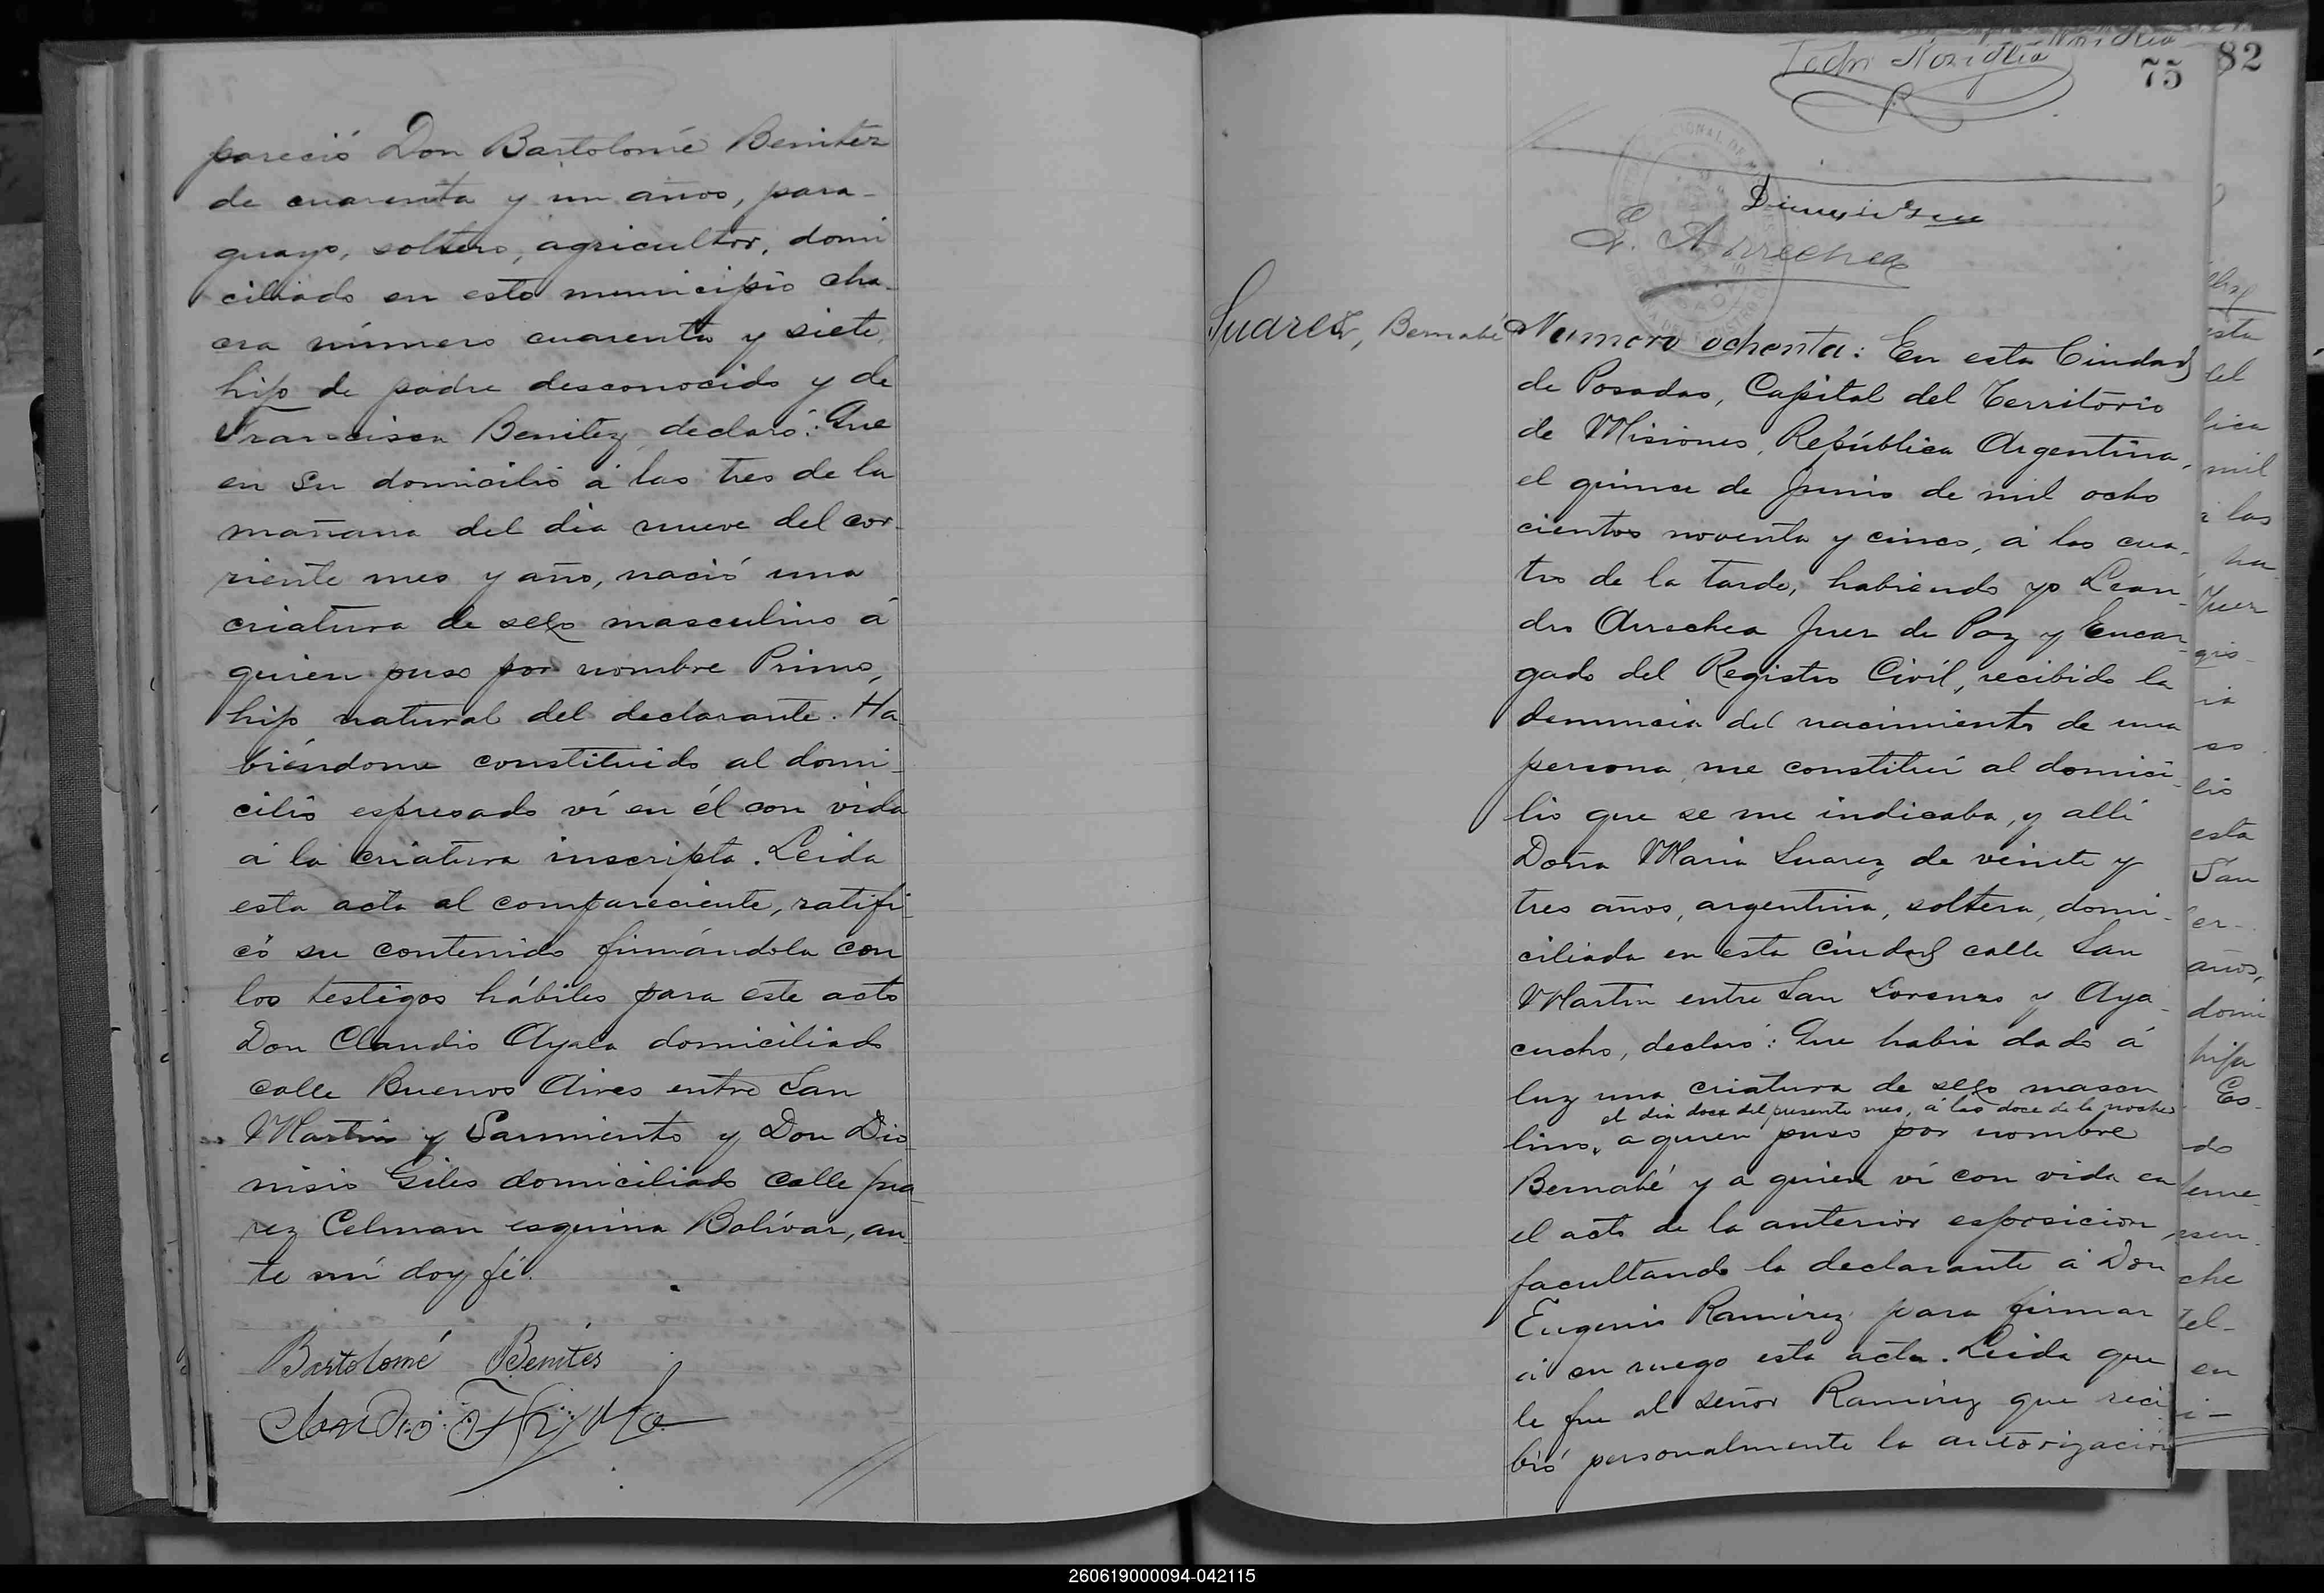 pareció Don Bartolomé Benitez
de cuarenta y un años, para-
guayo, soltero, agricultor, domi
ciliado en este municipio cha-
cra número cuarenta y siete,
hijo de padre desconocido y de
Francisca Benitez, declaró: Que
en su domicilio á las tres de la
mañana del dia nueve del cor-
riente mes y año, nació una
criatura de sexo masculino á
quien puso por nombre Primo,
hijo natural del declarante. Ha-
biéndome constituido al domi-
cilio espresado ví en él con vida
á la criatura inscripta. Leida
esta acta al compareciente, ratifi-
có su contenido firmándola con
los testigos hábiles para este acto
Don Claudio Ayala domiciliado
calle Buenos Aires entre San
Martin y Sarmiento y Don Dio
nisio Giles domiciliado calle Jua
rez Celman esquina Bolívar, an-
te mí doy fé.
Bartolomé Benites
82
75
L. Arrechea
Suarez, Bernabé
Numero ochenta: En esta Ciudad
de Posadas, Capital del Territorio
de Misiones, República Argentina,
el quince de Junio de mil ocho
cientos noventa y cinco, á las cua-
tro de la tarde, habiendo yo Lean-
dro Arrechea Juez de Paz y Encar-
gado del Registro Civil, recibido la
denuncia del nacimiento de una
persona, me constituí al domici-
lio que se me indicaba, y alli
Doña Maria Suarez de veinte y
tres años, argentina, soltera, domi-
ciliada en esta Ciudad calle San
Martin entre San Lorenzo y Aya-
cucho, declaró: Que habia dado á
luz una criatura de sexo mascu
el dia doce del presente mes, á las doce de la noche
lino, a quien puso por nombre
Bernabé y a quien ví con vida en
el acto de la anterior esposicion,
facultando la declarante á Don
Eugenio Ramirez para firmar
á su ruego esta acta. Leida que
le fue al señor Ramirez que reci
bió personalmente la autorización
260619000094-042115